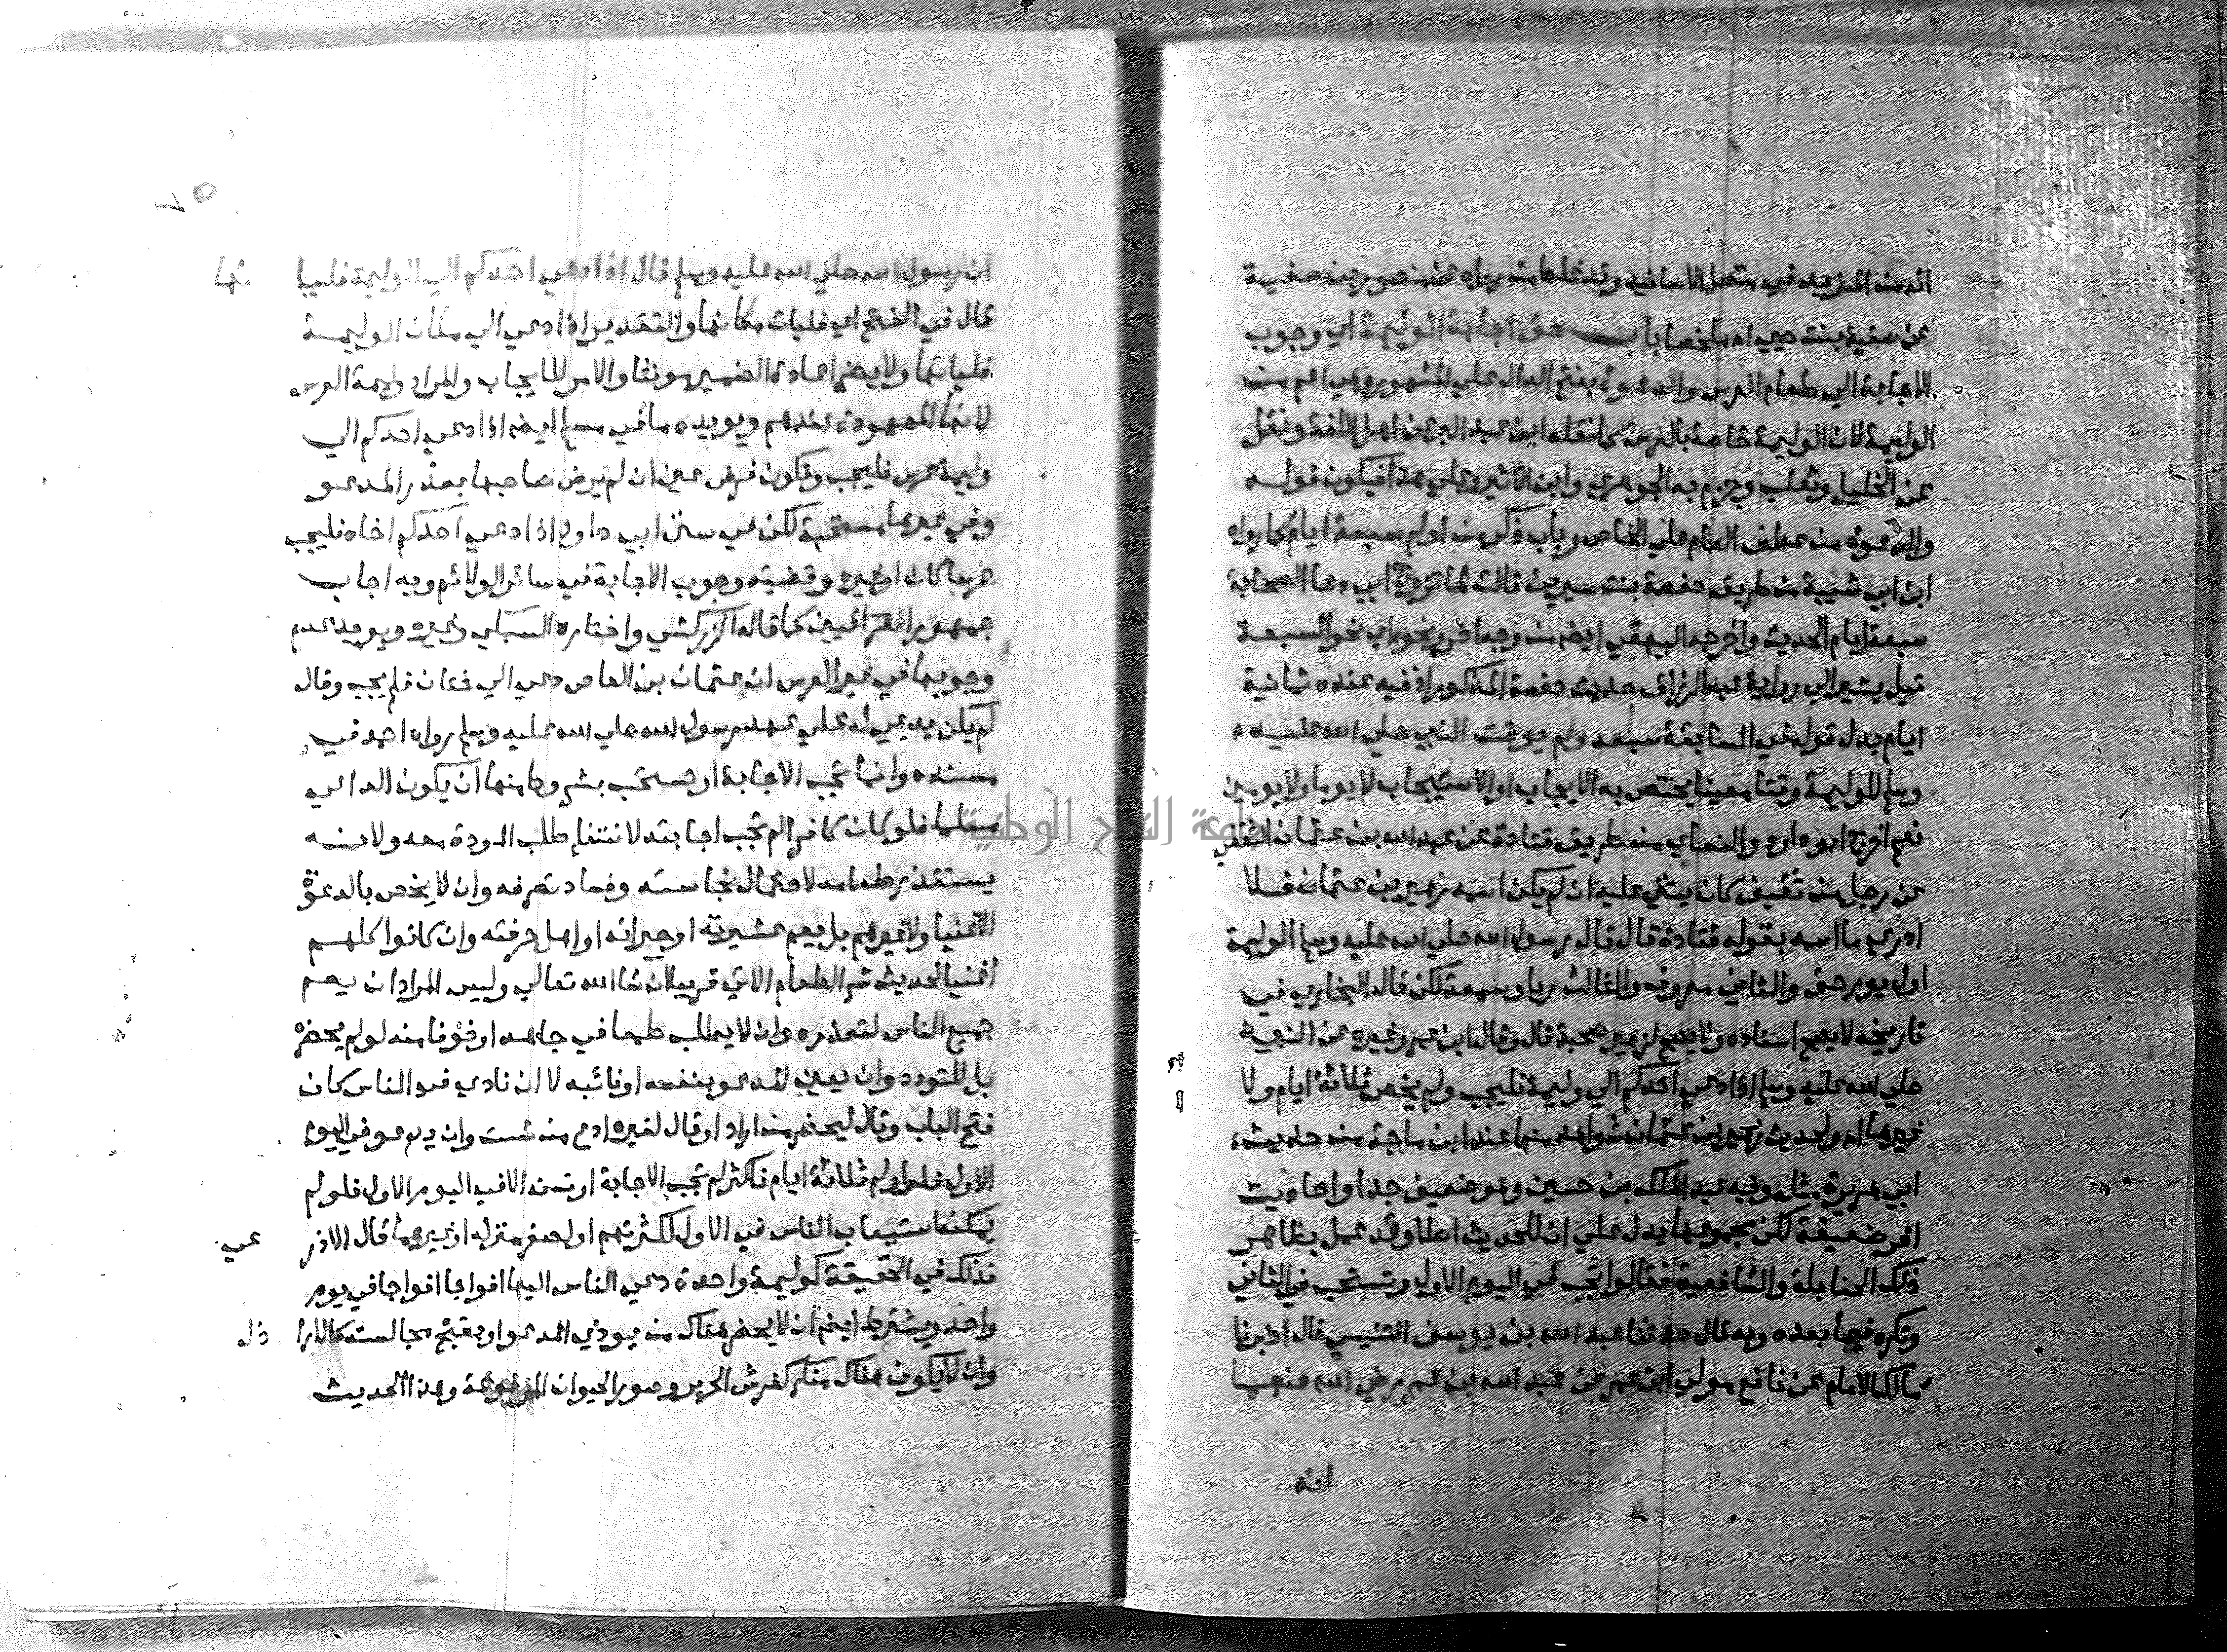 انه من المزيد في متصل الاسانيد وقد غلط من رواه عن منصور بن صفية
عن صفية بنت حيي اه ملخصا باب حق اجابة الوليمة اي وجوب
الاجابة الي طعام العرس والدعوة بفتح الدال علي المشهور وهي اعم من
الوليمة لان الوليمة خاصة بالعرس كما نقله ابن عبد البر عن اهل اللغة ونقل
عن الخليل وثعلب وجزم به الجوهري وابن الاثير وعلي هذا فيكون قوله
والدعوة من عطف العام علي الخاص وباب ذكر من اولم سبعة ايام كما رواه
ابن ابي شيبة من طريق حفصة بنت سيرين قالت لما تزوج ابي دعا الصحابة
سبعة ايام الحديث واخرجه البيهقي ايضا من وجه اخر ونحوه اي نحو السبعة
قيل يشير الي رواية عبد الرزاق حديث حفصة المذكور اذ فيه عنده ثمانية
ايام بدل قوله في السابقة سبعة ولم يوقت النبي صلي الله عليه
وسلم للوليمة وقتا معينا يختص به الايجاب او الاستيجاب لا يوما ولا يومين
نعم اخرج ابو داود والنساي من طريق قتادة عن عبد الله بن عثمان الثقفي
عن رجل من ثقيف كان يثني عليه ان لم يكن اسمه زهير بن عثمان فلا
ادري ما اسمه يقوله قتادة قال قال رسول الله صلي الله عليه وسلم الوليمة
اول يوم حق والثاني معروف والثالث ريا وسمعة لكن قال البخاري في
تاريخه لا يصح اسناده ولا يصح لزهير صحبة قال وقال ابن عمر وغيره عن النبي
صلي الله عليه وسلم اذا دعي احدكم الي وليمة فليجب ولم يخص ثلاثة ايام ولا
غيرها اه ولحديث زهير بن عثمان شواهد منها عند ابن ماجة من حديث
ابي هريرة مثله وفيه عبد الملك بن حسين وهو ضعيف جدا واحاديث
اخر ضعيفة لكن مجموعها يدل علي ان للحديث اصلا وقد عمل بظاهر
ذلك الحنابلة والشافعية فقالوا تجب في اليوم الاول وتستحب في الثاني
وتكره فيما بعده وبه قال حدثنا عبد الله بن يوسف التنيسي قال اخبرنا
مالك الامام عن نافع مولي ابن عمر عن عبد الله بن عمر رضي الله عنهما
انه
٧٥
ان رسول الله صلي الله عليه وسلم قال اذا دعي احدكم الي الوليمة فليا تها
قال في الفتح اي فليات مكانها والتقدير اذا دعي الي مكان الوليمة
فلياتها ولا يضر اعادة الضمير مونثا والامر للايجاب والمراد وليمة العرس
لانها المعهودة عندهم ويويده ما في مسلم ايضا اذا دعي احدكم الي
وليمة عرس فليجب وتكون فرض عين ان لم يرض صاحبها بعذر المدعو
وفي غيرها مستحبة لكن في سنن ابي داود اذا دعي احدكم اخاه فليجب
عرسا كان او غيره وقضيته وجوب الاجابة في سائر الولائم وبه اجاب
جمهور العراقيين كما قاله الزركشي واختاره السبكي وغيره ويويد عدم
وجوبها في غير العرس ان عثمان بن العاص دعي الي ختان فلم يجب وقال
لم يكن يدعي له علي عهد رسول الله صلي الله عليه وسلم رواه احمد في
مسنده وانما تجب الاجابة او تستحب بشروط منها ان يكون الداعي
مسلما فلو كان كافرا لم تجب اجابته لانتفاء طلب المودة معه ولانه
يستقذر طعامه لاحتمال نجاسته وفساد تصرفه وان لا يخص بالدعوة
الاغنيا ولا غيرهم بل يعم عشيرته او جيرانه او اهل حرفته وان كانوا كلهم
اغنيا لحديث شر الطعام الاتي قريبا ان شا الله تعالي وليس المراد ان يعم
جميع الناس لتعذره وان لا يطلب طمعا في جاهه او خوفا منه لو لم يحضره
بل للتودد وان يعين المدعو بنفسه او نائبه لا ان نادي في الناس كان
فتح الباب وقال ليحضر من اراد او قال لغيره ادع من شئت وان يدعو في اليوم
الاول فلو اولم ثلاثة ايام فاكثر لم تجب الاجابة او تسن الا في اليوم الاول فلو لم
يمكنه استيعاب الناس في الاول لكثرتهم او لصغر منزله او غيرهما قال الاذر عي
فذلك في الحقيقة كوليمة واحدة دعي الناس اليها افواجا افواجا في يوم
واحد ويشترط ايضا ان لا يحضر هناك من يوذي المدعو او تقبح مجالسته كالارا ذل
وان لا يكون هناك منكر كفرش الحرير وصور الحيوان المرفوعة وهذا الحديث
جامعة النجاح الوطنية